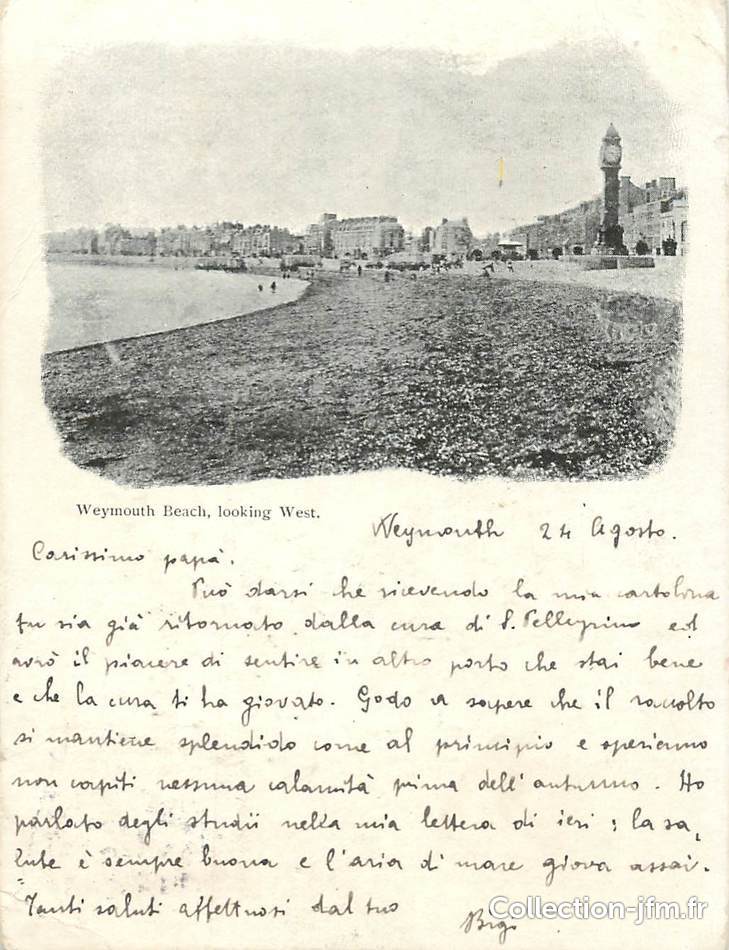 Weymouth Beach, looking West.
Weymouth 24 Agosto.
Carissimo papà.
Può darsi che ricevendo la mia cartolina
tu sia già ritornato dalla cura di S. Pellegrino ed
avrò il piacere di sentire in altro posto che stai bene
e che la cura ti ha giovato. Godo a sapere che il raccolto
si mantiene splendido come al principio e speriamo
non capiti nessuna calamità prima dell'autunno. Ho
parlato degli studii nella mia lettera di ieri; la sa,
lute è sempre buona e l'aria di mare giova assai.
Tanti saluti affettuosi dal tuo
Collection-jfm.fr